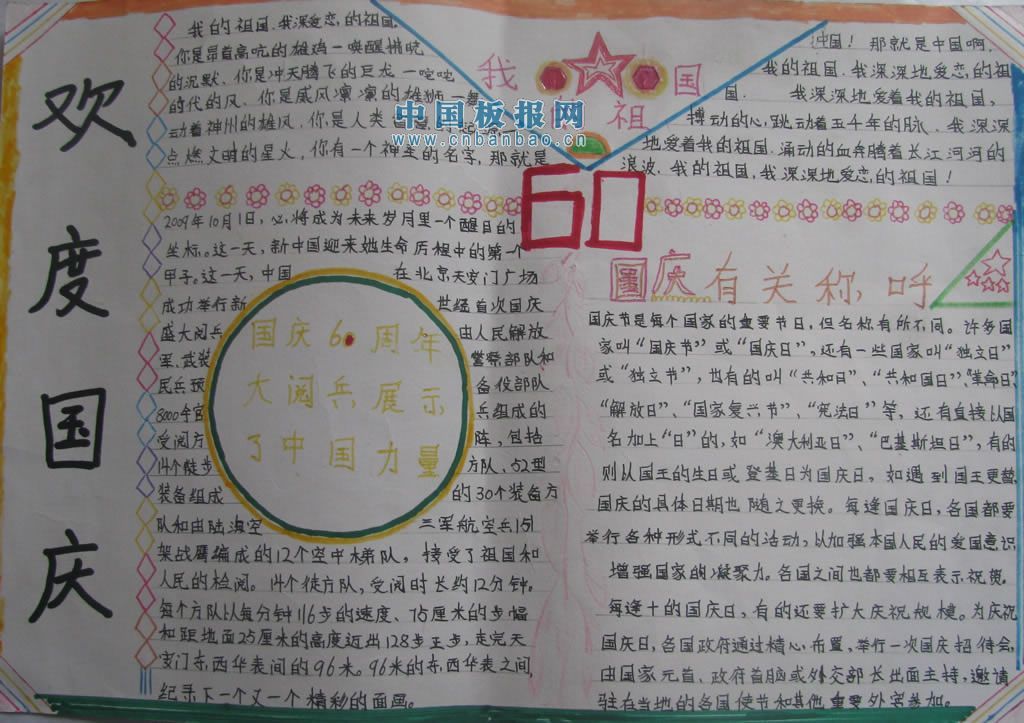 欢度国庆
我的祖国,我深爱恋,的祖国,
你是昂首高吭的雄鸡一唤醒拂晓
的沉默,你是冲天腾飞的巨龙一
的代的风,你是威风凛凛的雄狮一舞
动着神州的雄风,你是人类
点燃文明的星火,你有一个神圣的名字,那就是
我的祖国
中国板报网
www.cnbanbao.cn
中国! 那就是中国啊,
我的祖国,我深深地爱恋的祖
国. 我深深地爱着我的祖国,
搏动的心,跳动着五千年的脉,我深深
地爱着我的祖国,涌动的血奔腾着长江河河的
浪波,我的祖国,我深深地爱恋的祖国!
60
2009年10月1日,必将成为未来岁月里一个醒目的
坐标。这一天,新中国迎来她生命历程中的第一个
甲子。这一天,中国 在北京天安门广场
成功举行新 世纪首次国庆
盛大阅兵 由人民解放
军、武装 警察部队和
民兵预 备役部队
8000余官 兵组成的
受阅方 阵,包括
14个徒步 方队、52型
装备组成 的30个装备方
队和由陆海空 三军航空兵151
架战鹰编成的12个空中梯队,接受了祖国和
人民的检阅。14个徒方队,受阅时长约12分钟。
每个方队以每分钟116步的速度、75厘米的步幅
和距地面25厘米的高度迈出128步正步,走完天
安门东西华表间的96米。96米的东西华表之间,
纪录下一个又一个精彩的画面。
国庆60周年
大阅兵展示
了中国力量
国庆有关称呼
国庆节是每个国家的重要节日,但名称有所不同。许多国
家叫“国庆节”或“国庆日”,还有一些国家叫“独立日”
或“独立节”,也有的叫“共和日”、“共和国日”、“革命日”、
“解放日”、“国家复兴节”、“宪法日”等,还有直接以国
名加上“日”的,如“澳大利亚日”、“巴基斯坦日”,有的
则以国王的生日或登基日为国庆日,如遇到国王更替,
国庆的具体日期也随之更换。每逢国庆日,各国都要
举行各种形式不同的活动,以加强本国人民的爱国意识
增强国家的凝聚力。各国之间也都要相互表示祝贺。
每逢十的国庆日,有的还要扩大庆祝规模。为庆祝
国庆日,各国政府通过精心布置,举行一次国庆招待会,
由国家元首、政府首脑或外交部长出面主持,邀请
驻在当地的各国使节和其他重要外宾参加。